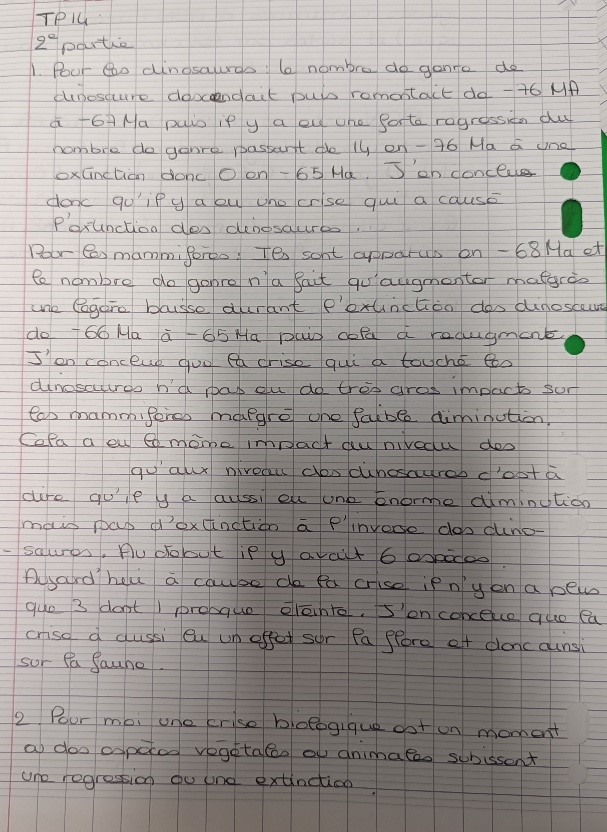 TP14
2e partie
1. Pour les dinosaures : le nombre de genre de
dinosaure descendait puis remontait de -76 MA
à -67 Ma puis il y a eu une forte regression du
nombre de genre passant de 14 en -76 Ma à une
extinction donc 0 en -65 Ma. J'en conclue
donc qu'il y a eu une crise qui a causé
l'extinction des dinosaures.
Pour les mammifères : Ils sont apparus en -68 Ma et
le nombre de genre n'a fait qu'augmenter malgrés
une légère baisse durant l'extinction des dinosaure
de -66 Ma à -65 Ma puis cela à reaugmenté.
J'en conclue que la crise qui a touché les
dinosaures n'a pas eu de très gros impacts sur
les mammifères malgré une faible diminution.
Cela a eu le même impact au niveau des
qu'aux niveau des dinosaures c'est à
dire qu'il y a aussi eu une énorme diminution
mais pas d'extinction à l'inverse des dino-
- saures. Au debut il y avait 6 espèces.
Aujard'heui à cause de la crise il n'y en a plus
que 3 dont 1 presque éteinte. J'en conclue que la
crise à aussi eu un effet sur la flore et donc ainsi
sur la faune.
2. Pour moi une crise biologique est un moment
a) des espèces vegétales ou animales subissent
une regression ou une extinction.